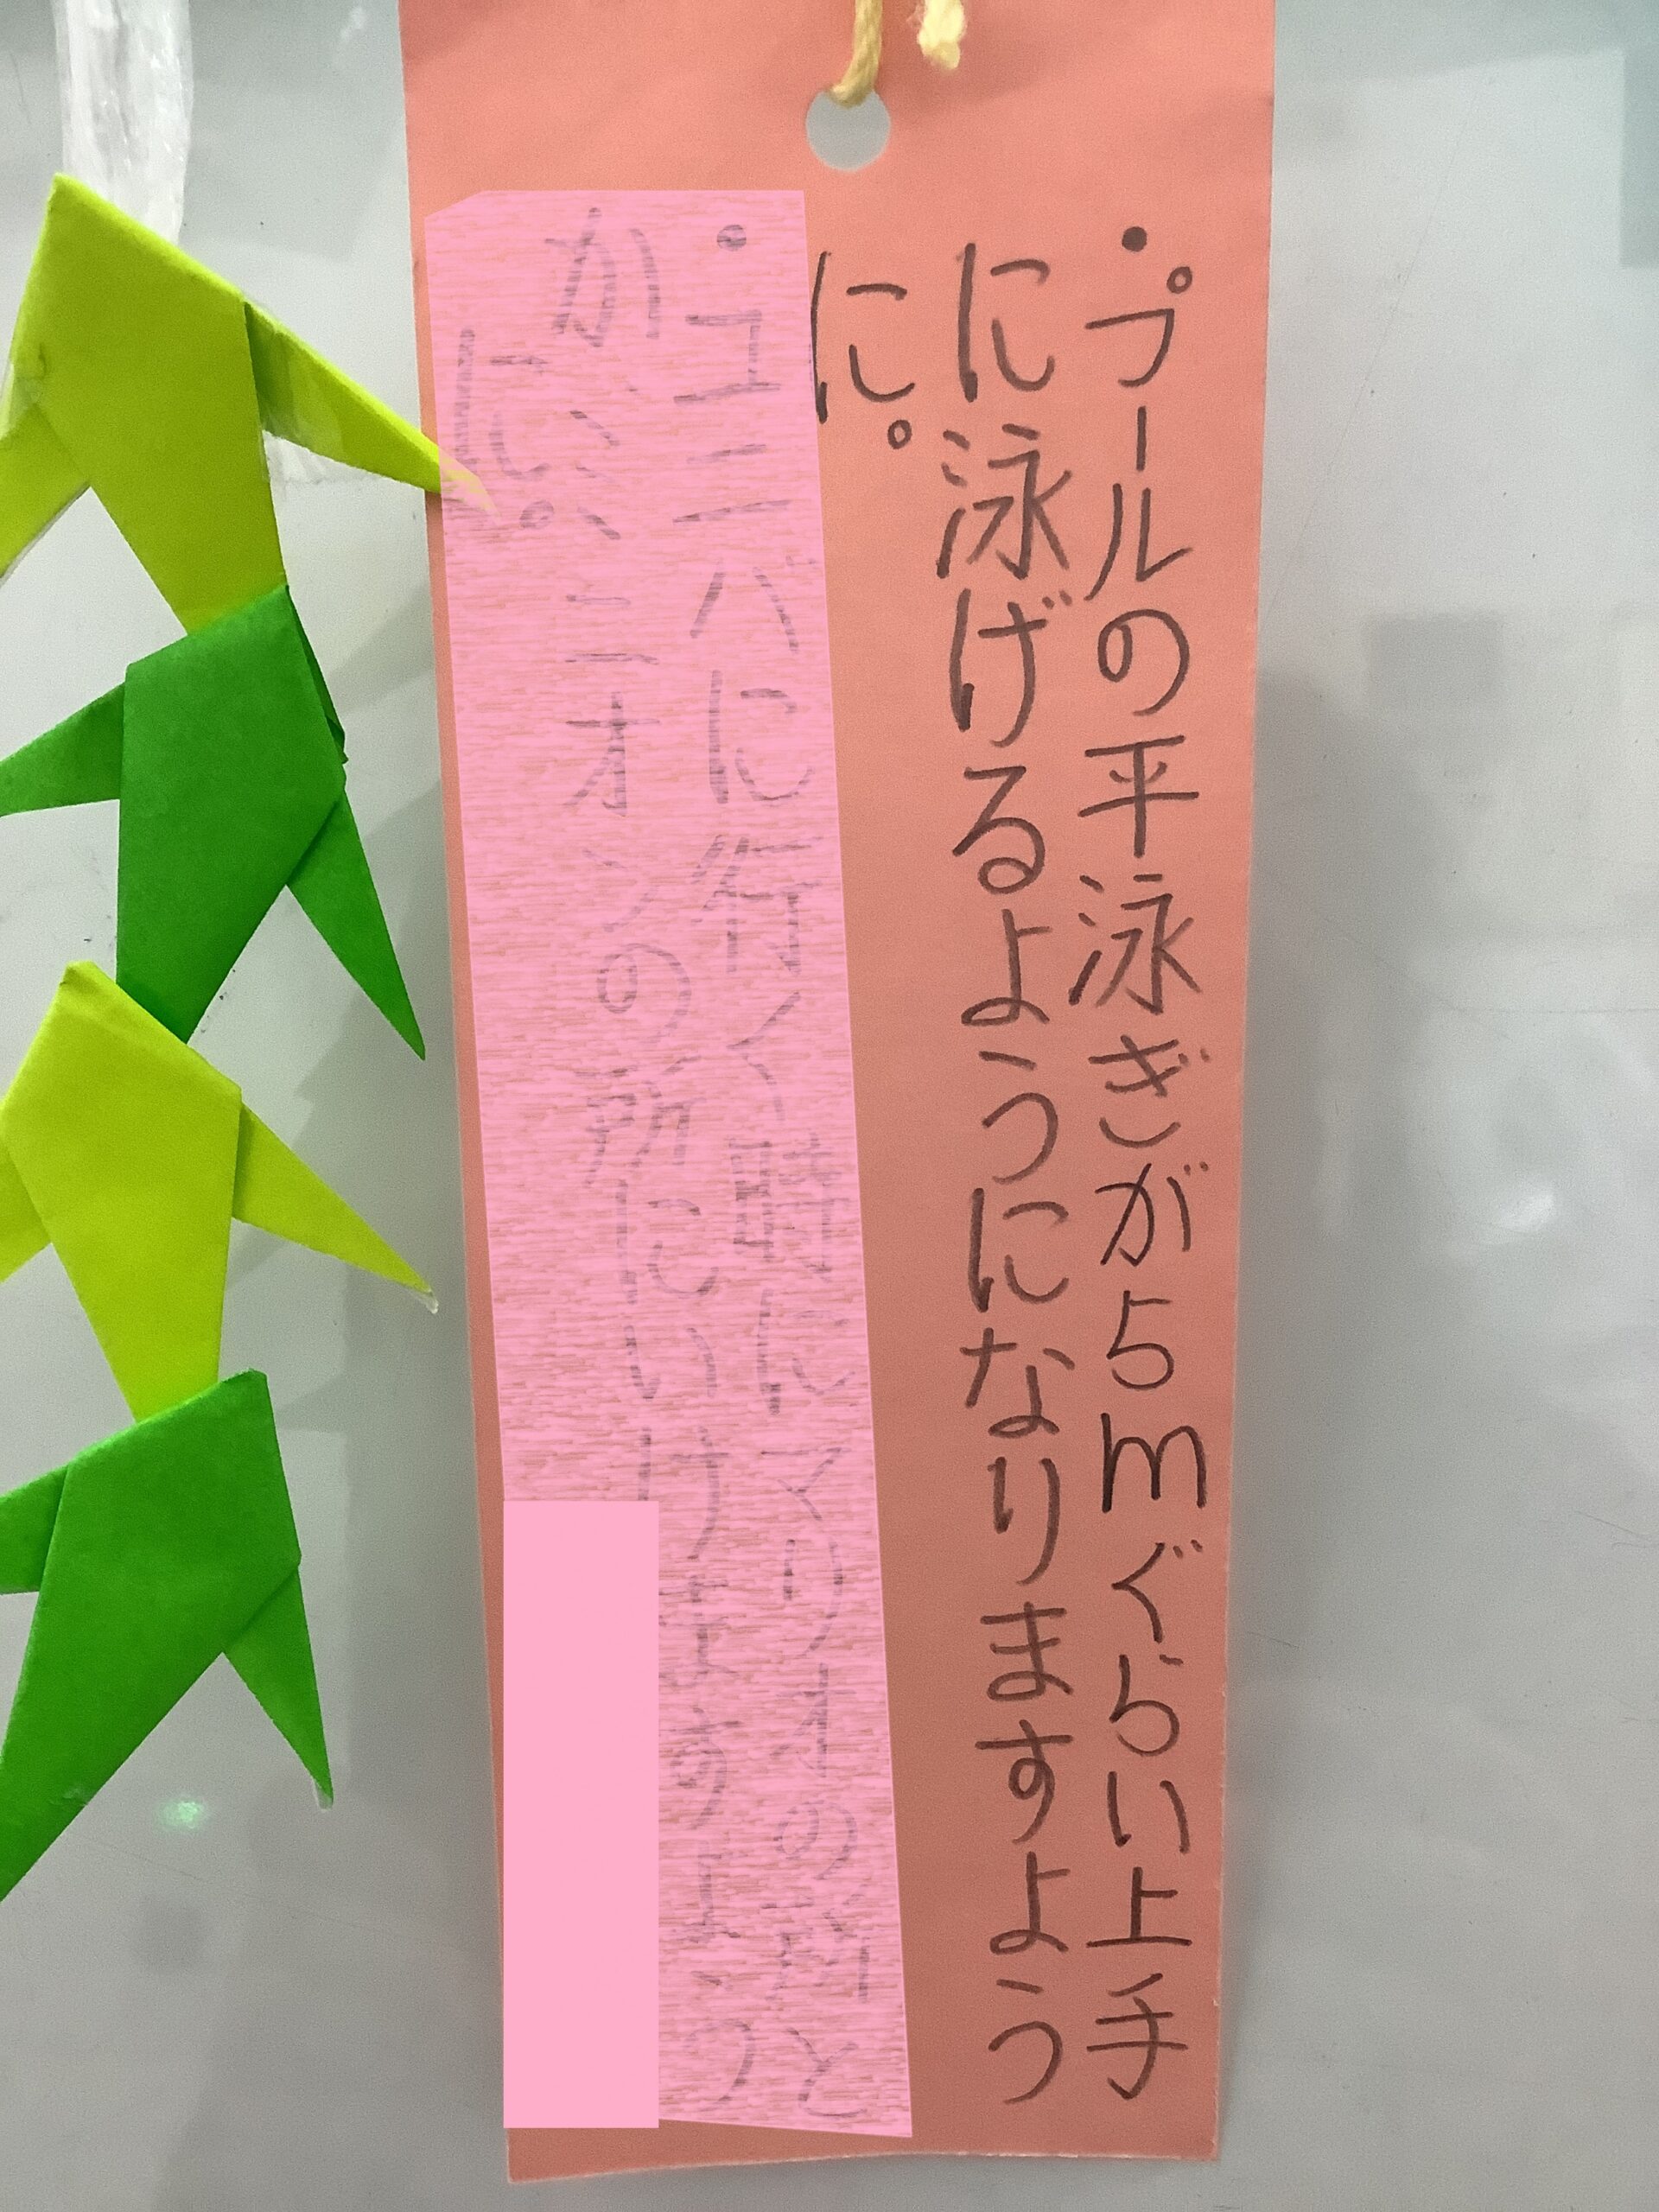 ・プールの平泳ぎが5mぐらい上手
に泳げるようになりますよう
に。
・ユニバに行く時にマリオの所と
か、ミニオンの所にいけますよう
に。